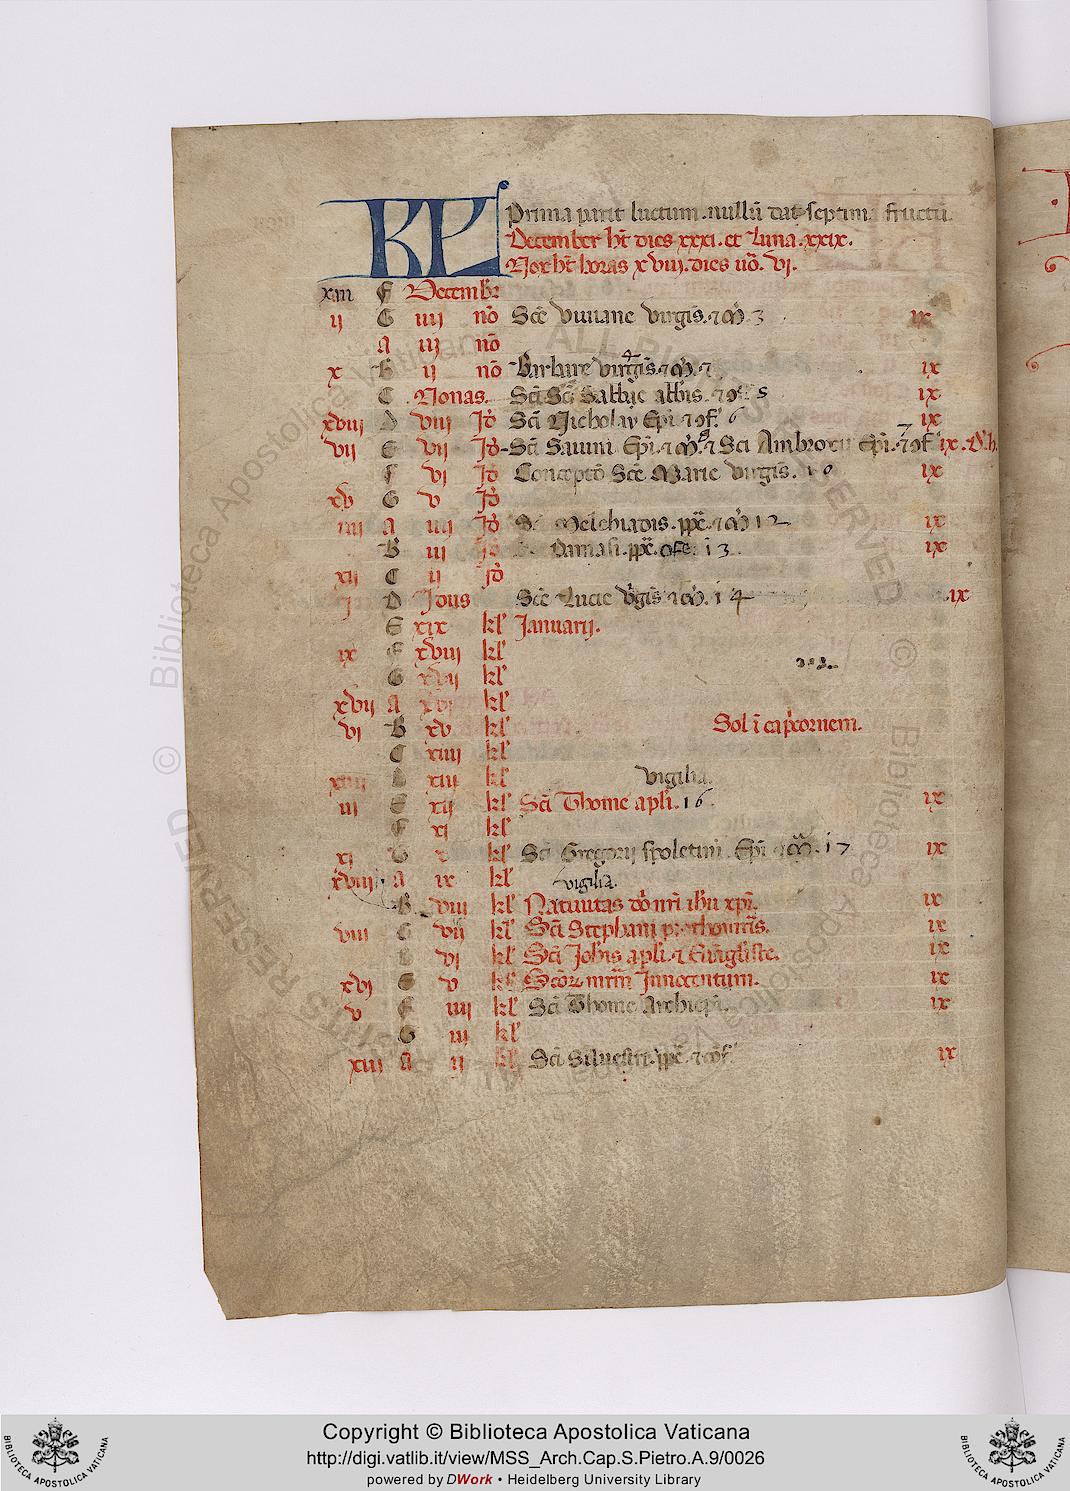 KL Prima parit luctum. nullū dat septima fructū.
December ht dies xxxi. et luna. xxix.
Nox ht horas xviij. dies uō. vi.
xiii F Decembr
ij G iiij nō Scē Viuiane virgis. ⁊ m̄. 3 ix
A iij nō
x B ij nō Barbare virgis. ⁊ m̄. ix
C Nonas. Sci Sabbe abbis. ⁊ ɔf. 5 ix
xviij D viij Id Sci Nicholay Epi ⁊ ɔf. 6 ix
vij E vij Id Sci Sauini Epi. ⁊ m̄. ⁊ Sci Ambrosii Epi. ⁊ ɔf. 7 ix.
F vj Id Conceptō Scē Marie virgis. 10 ix
xv G v Id
iiij A iiij Id Melchiadis. ppē. ⁊ m̄ 12 ix
B iij Id Damasi. ppē. ɔfe. 13 ix
xij C ij Id
j D Idus Scē Lucie v̄gis ⁊ m̄. 14 ix
E xix kl Januarij.
ix F xviij kl
G xvij kl
xvij A xvj kl
vj B xv kl Sol ī capcornem.
C xiiij kl
xiiij D xiij kl vigilia.
iij E xij kl Sci Thome apli. 16 ix
F xj kl
xj G x kl Sci Gregorij spoletini. Epi ⁊ m̄. 17 ix
xviiij A ix kl vigilia.
B viij kl Natiuitas dōmi nri ihu xpi. ix
viij C vij kl Sci Stephani prothomris. ix
D vj kl Sci Johis apli. ⁊ Evāgliste. ix
xvj E v kl Scōr mrm Innocentum. ix
v F iiij kl Sci Thome Archiepi. ix
G iij kl
xiij A ij kl Sci Siluestri. ppē. ⁊ ɔf. ix
© Biblioteca Apostolica Vaticana ALL RIGHTS RESERVED
Copyright © Biblioteca Apostolica Vaticana
http://digi.vatlib.it/view/MSS_Arch.Cap.S.Pietro.A.9/0026
powered by DWork • Heidelberg University Library
BIBLIOTECA APOSTOLICA VATICANA
BIBLIOTECA APOSTOLICA VATICANA